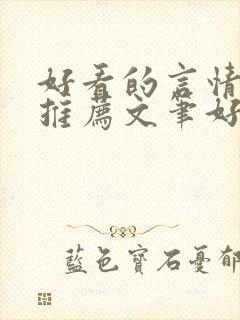 好看的言情
推薦文筆好
藍色寶石憂郁